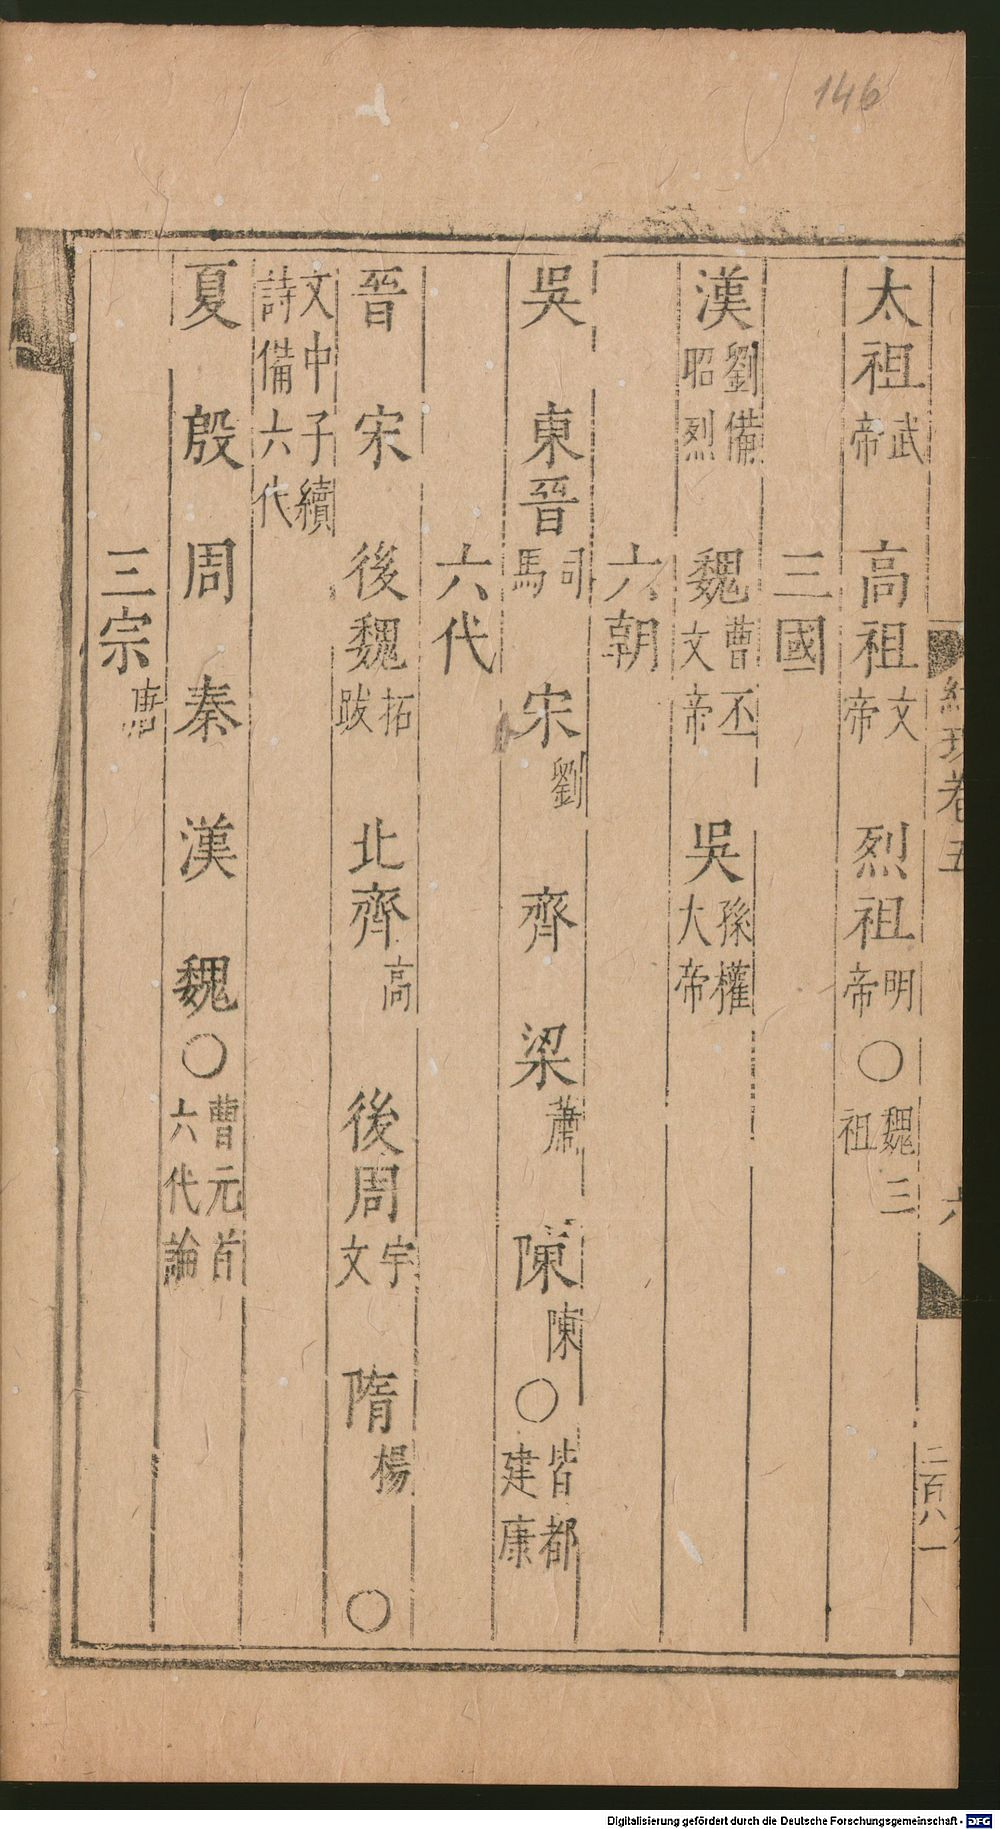 146
太祖武帝 高祖文帝 烈祖明帝〇魏三祖
三國
漢劉備昭烈 魏曹丕文帝 吳孫權大帝
六朝
吳 東晉司馬 宋劉 齊 梁蕭 陳陳〇皆都建康
六代
晉 宋 後魏拓跋 北齊高 後周宇文 隋楊 〇
文中子續詩備六代
夏 殷 周 秦 漢 魏〇曹元首六代論
三宗唐
卷五
六
二百八一
Digitalisierung gefördert durch die Deutsche Forschungsgemeinschaft - DFG